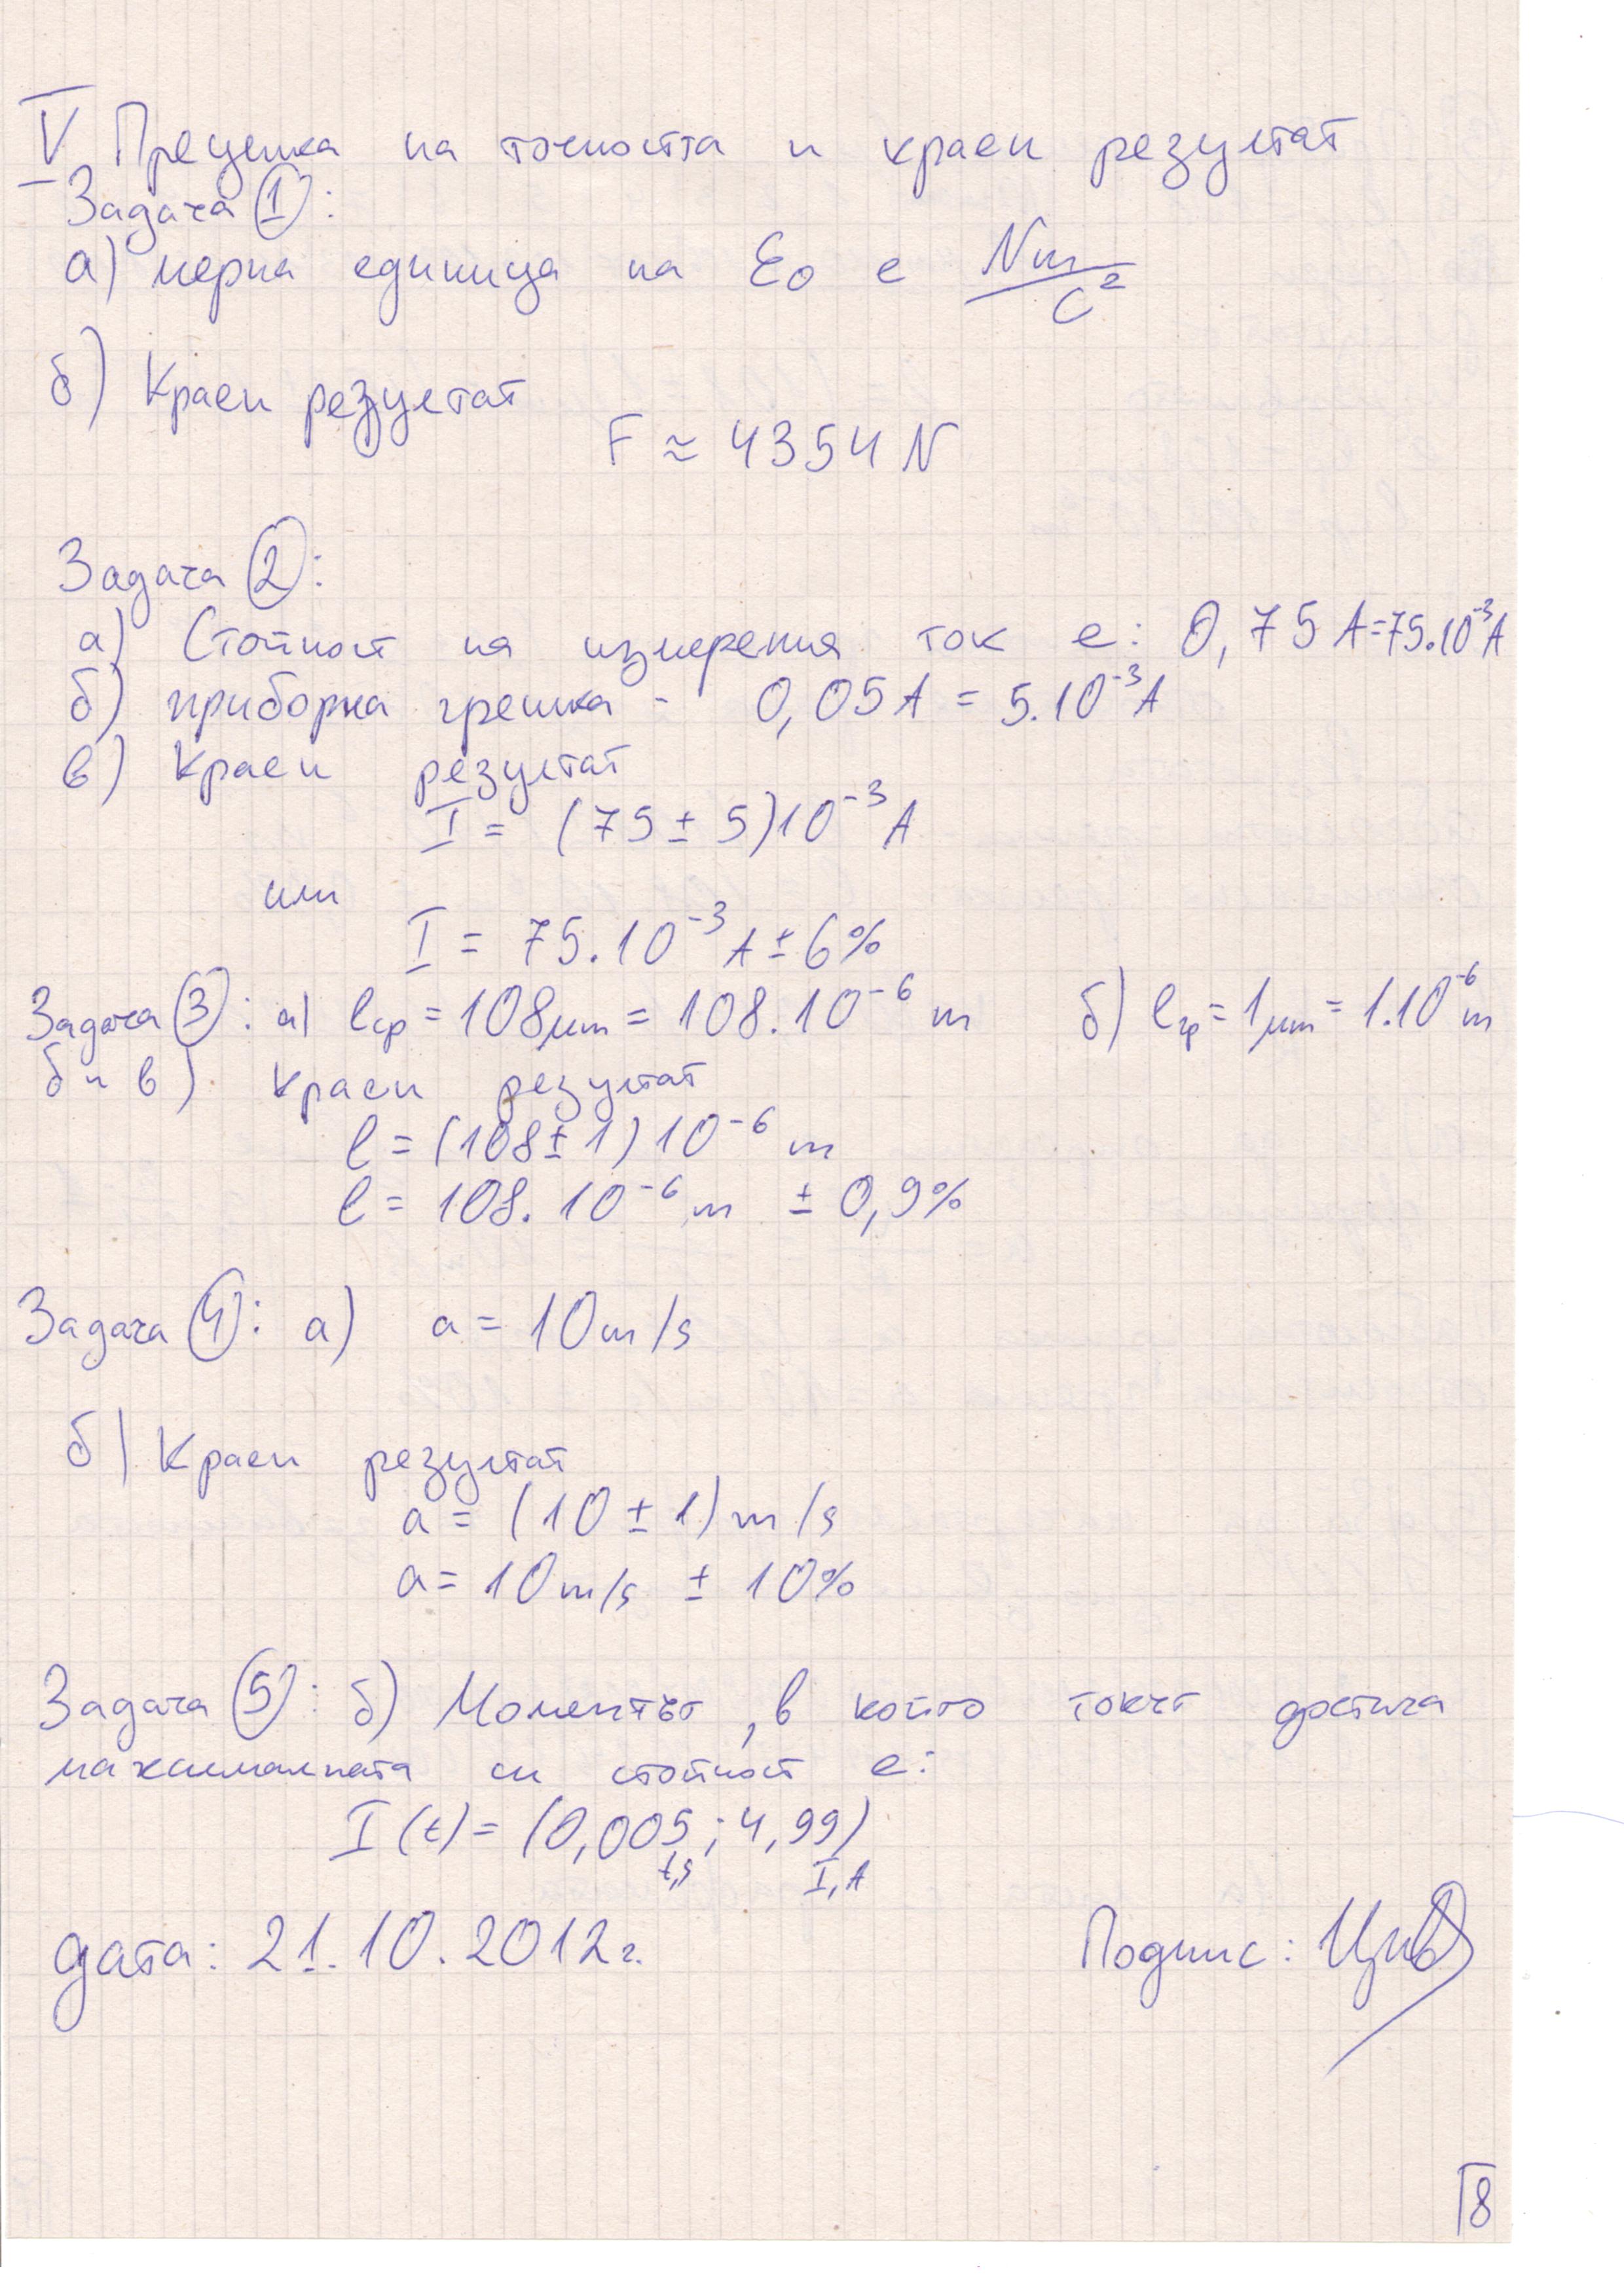 V Преценка на точността и краен резултат
Задача 1:
а) мерна единица на ε₀ е Nm/C²
б) Краен резултат
F ≈ 4354 N
Задача 2:
а) Стойност на измерения ток е: 0,75 A=75.10⁻³A
б) приборна грешка - 0,05A = 5.10⁻³A
в) Краен резултат
I = (75 ± 5)10⁻³A
или
I = 75.10⁻³ A ± 6%
Задача 3: а) lср = 108μm = 108.10⁻⁶ m б) lгр = 1μm = 1.10⁻⁶m
б и в) краен резултат
l = (108 ± 1) 10⁻⁶ m
l = 108. 10⁻⁶ m ± 0,9%
Задача 4: а) a = 10m/s
б) Краен резултат
a = (10 ± 1) m/s
a = 10m/s ± 10%
Задача 5: б) Моментът, в който токът достига
максималната си стойност е:
I(t) = (0,005 ; 4,99)
t,s I,A
дата: 21.10.2012г. Подпис:
8